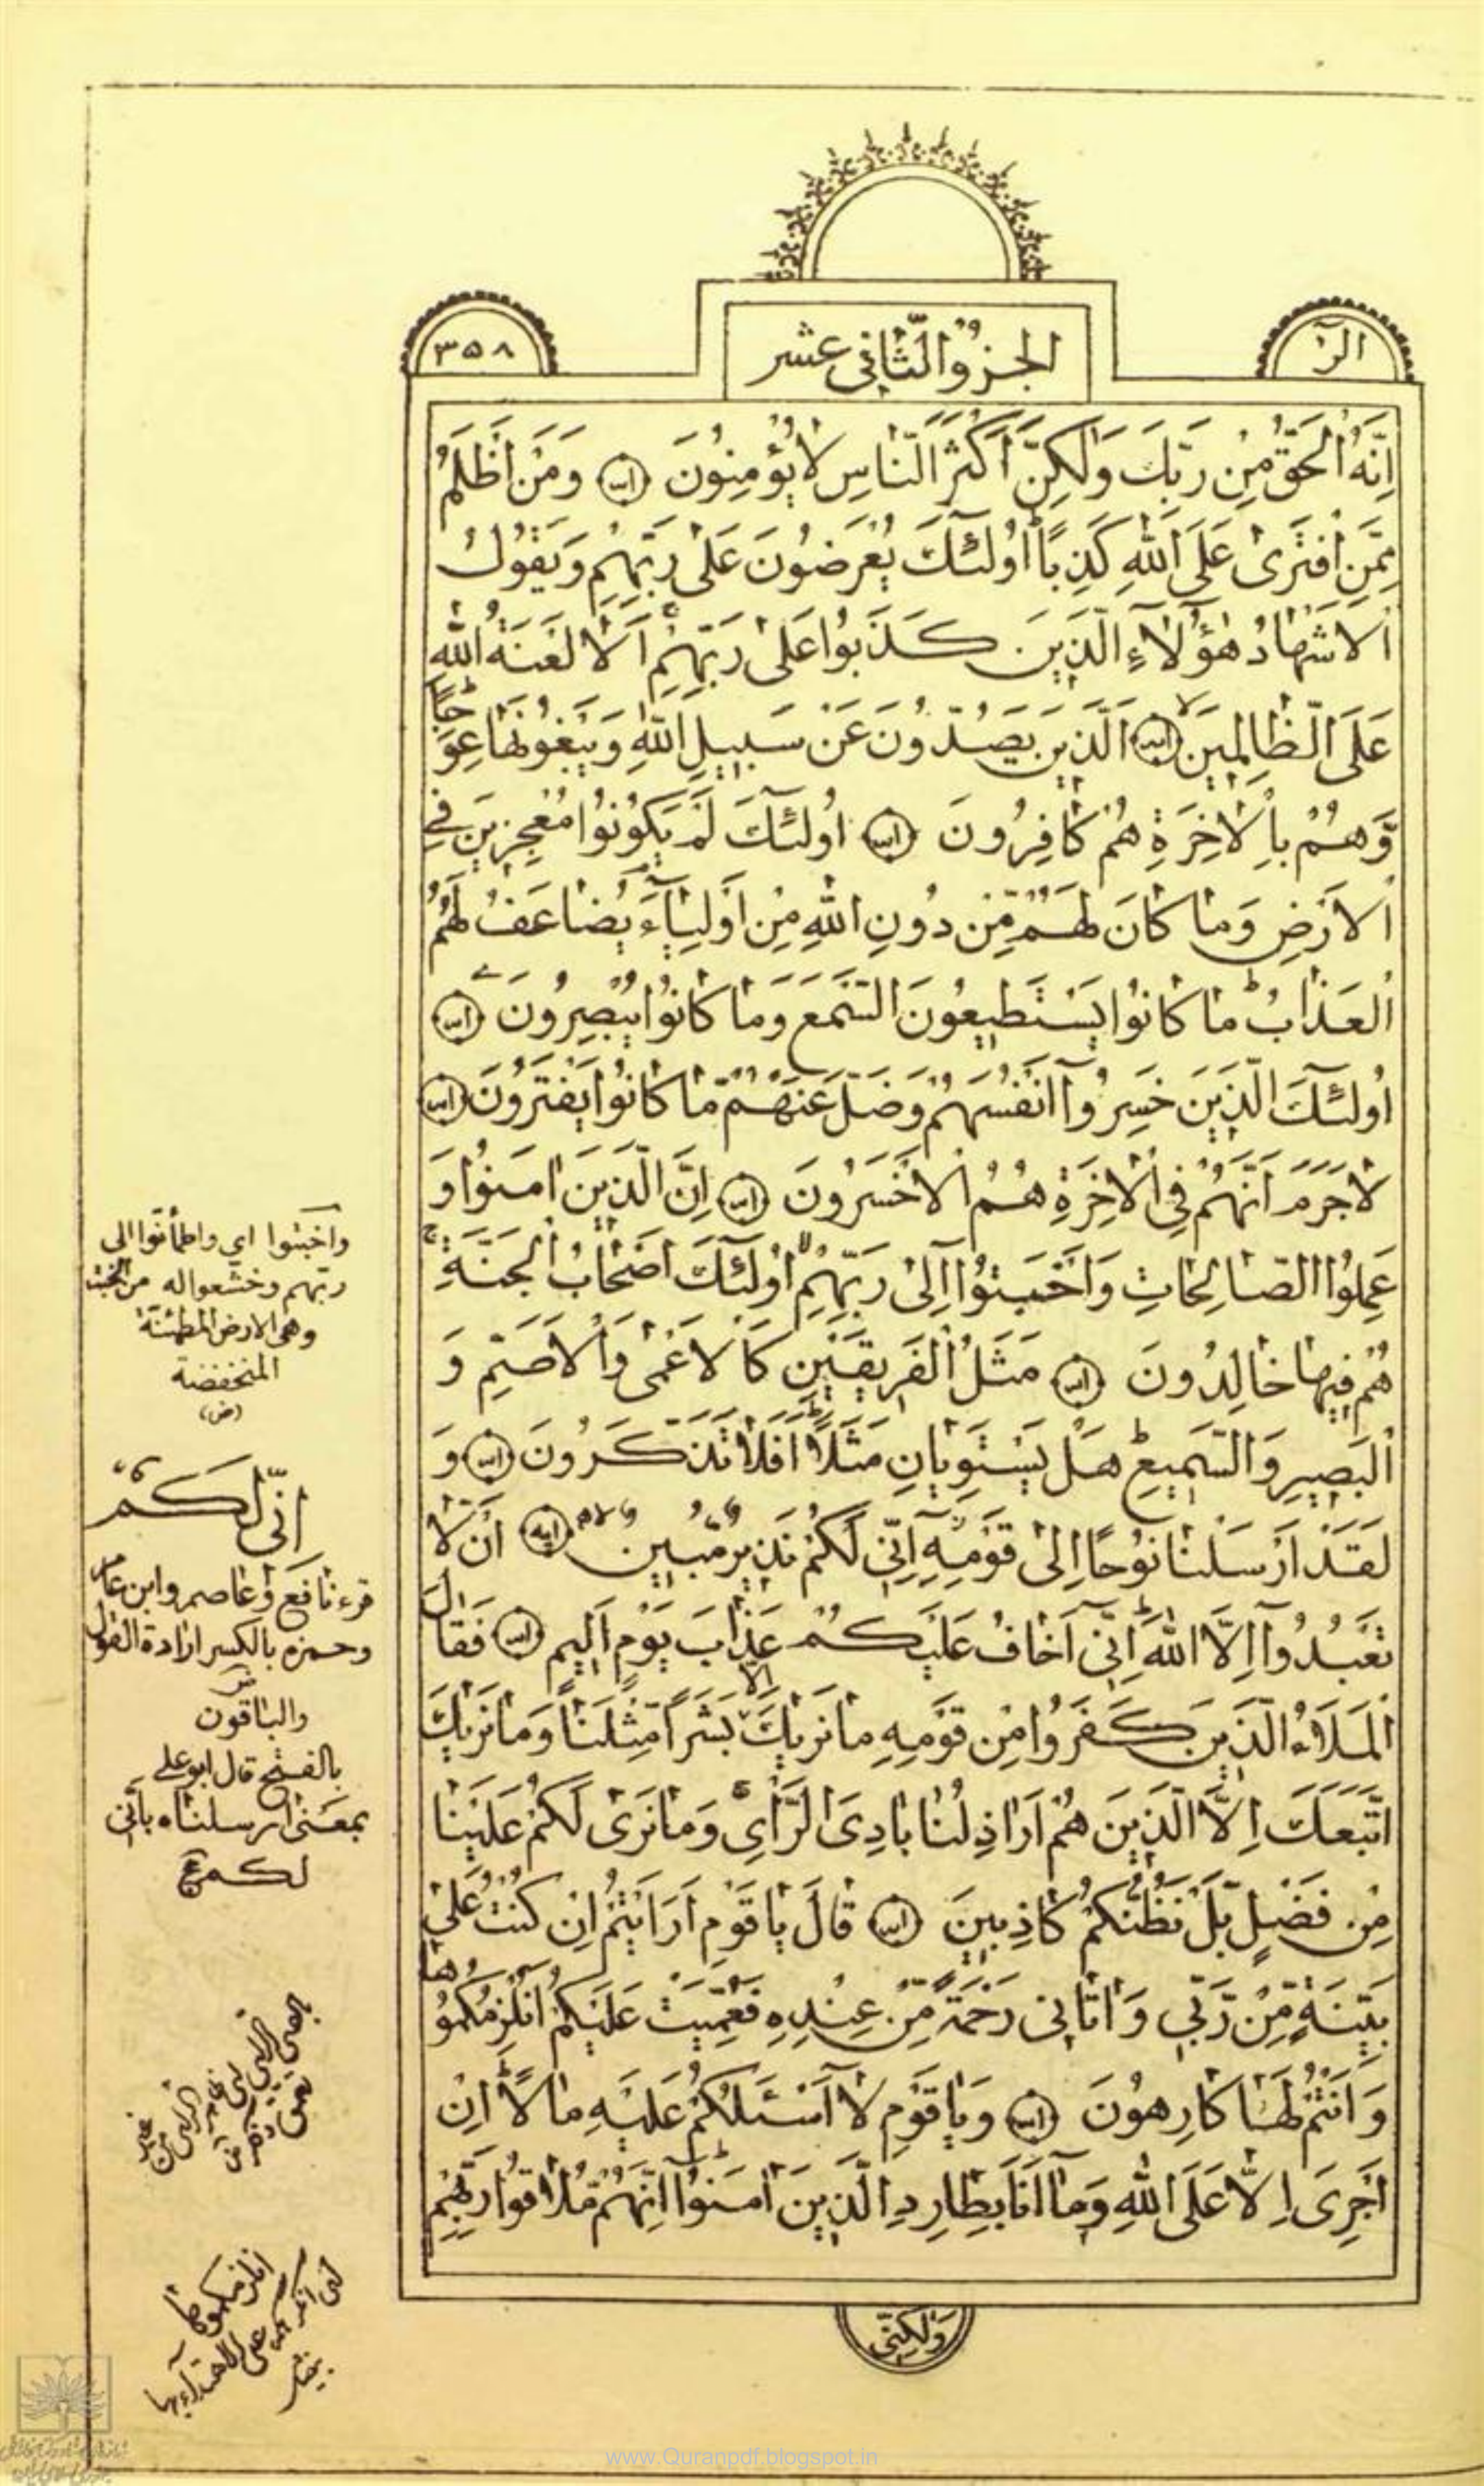 الر
الجزؤ الثاني عشر
٣٥٨
اِنَّهُ الْحَقُّ مِنْ رَبِّكَ وَلٰكِنَّ اَكْثَرَ النَّاسِ لَا يُؤْمِنُونَ وَمَنْ اَظْلَمُ
مِمَّنِ افْتَرٰى عَلَى اللّٰهِ كَذِبًا اُولٰٓئِكَ يُعْرَضُونَ عَلٰى رَبِّهِمْ وَيَقُولُ
الْاَشْهَادُ هٰٓؤُلَآءِ الَّذِينَ كَذَبُوا عَلٰى رَبِّهِمْ اَلَا لَعْنَةُ اللّٰهِ
عَلَى الظَّالِمِينَ اَلَّذِينَ يَصُدُّونَ عَنْ سَبِيلِ اللّٰهِ وَيَبْغُونَهَا عِوَجًا
وَّهُمْ بِالْاٰخِرَةِ هُمْ كَافِرُونَ اُولٰٓئِكَ لَمْ يَكُونُوا مُعْجِزِينَ فِي
الْاَرْضِ وَمَا كَانَ لَهُمْ مِّنْ دُونِ اللّٰهِ مِنْ اَوْلِيَآءَ يُضَاعَفُ لَهُمُ
الْعَذَابُ مَا كَانُوا يَسْتَطِيعُونَ السَّمْعَ وَمَا كَانُوا يُبْصِرُونَ
اُولٰٓئِكَ الَّذِينَ خَسِرُوٓا اَنْفُسَهُمْ وَضَلَّ عَنْهُمْ مَّا كَانُوا يَفْتَرُونَ
لَا جَرَمَ اَنَّهُمْ فِي الْاٰخِرَةِ هُمُ الْاَخْسَرُونَ اِنَّ الَّذِينَ اٰمَنُوا وَ
عَمِلُوا الصَّالِحَاتِ وَاَخْبَتُوٓا اِلٰى رَبِّهِمْ اُولٰٓئِكَ اَصْحَابُ الْجَنَّةِ
هُمْ فِيهَا خَالِدُونَ مَثَلُ الْفَرِيقَيْنِ كَالْاَعْمٰى وَالْاَصَمِّ وَ
الْبَصِيرِ وَالسَّمِيعِ هَلْ يَسْتَوِيَانِ مَثَلًا اَفَلَا تَذَكَّرُونَ وَ
لَقَدْ اَرْسَلْنَا نُوحًا اِلٰى قَوْمِهٖٓ اِنِّي لَكُمْ نَذِيرٌ مُّبِينٌ اَنْ لَّا
تَعْبُدُوٓا اِلَّا اللّٰهَ اِنِّيٓ اَخَافُ عَلَيْكُمْ عَذَابَ يَوْمٍ اَلِيمٍ فَقَالَ
الْمَلَاُ الَّذِينَ كَفَرُوا مِنْ قَوْمِهِ مَا نَرٰيكَ اِلَّا بَشَرًا مِّثْلَنَا وَمَا نَرٰيكَ
اتَّبَعَكَ اِلَّا الَّذِينَ هُمْ اَرَاذِلُنَا بَادِيَ الرَّاْيِ وَمَا نَرٰى لَكُمْ عَلَيْنَا
مِنْ فَضْلٍ بَلْ نَظُنُّكُمْ كَاذِبِينَ قَالَ يَا قَوْمِ اَرَاَيْتُمْ اِنْ كُنْتُ عَلٰى
بَيِّنَةٍ مِّنْ رَّبِّي وَاٰتَانِي رَحْمَةً مِّنْ عِنْدِهِ فَعُمِّيَتْ عَلَيْكُمْ اَنُلْزِمُكُمُوهَا
وَاَنْتُمْ لَهَا كَارِهُونَ وَيَا قَوْمِ لَآ اَسْئَلُكُمْ عَلَيْهِ مَالًا اِنْ
اَجْرِيَ اِلَّا عَلَى اللّٰهِ وَمَآ اَنَا بِطَارِدِ الَّذِينَ اٰمَنُوٓا اِنَّهُمْ مُّلَاقُوا رَبِّهِمْ
وَلٰكِنِّي
واخبتوا اي واطمأنوا الى
ربهم وخشعوا له من الخبت
وهي الارض المطمئنة
المنخفضة
(ض)
اني لكم
قرء نافع وعاصم وابن عامر
وحمزه بالكسر ارادة القول
والباقون
بالفتح قال ابو علي
بمعنى ارسلناه باني
لكم
www.Quranpdf.blogspot.in